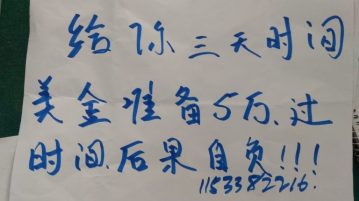 给你三天时间
美金准备5万、过
时间、后果自负!!!
1153382216!